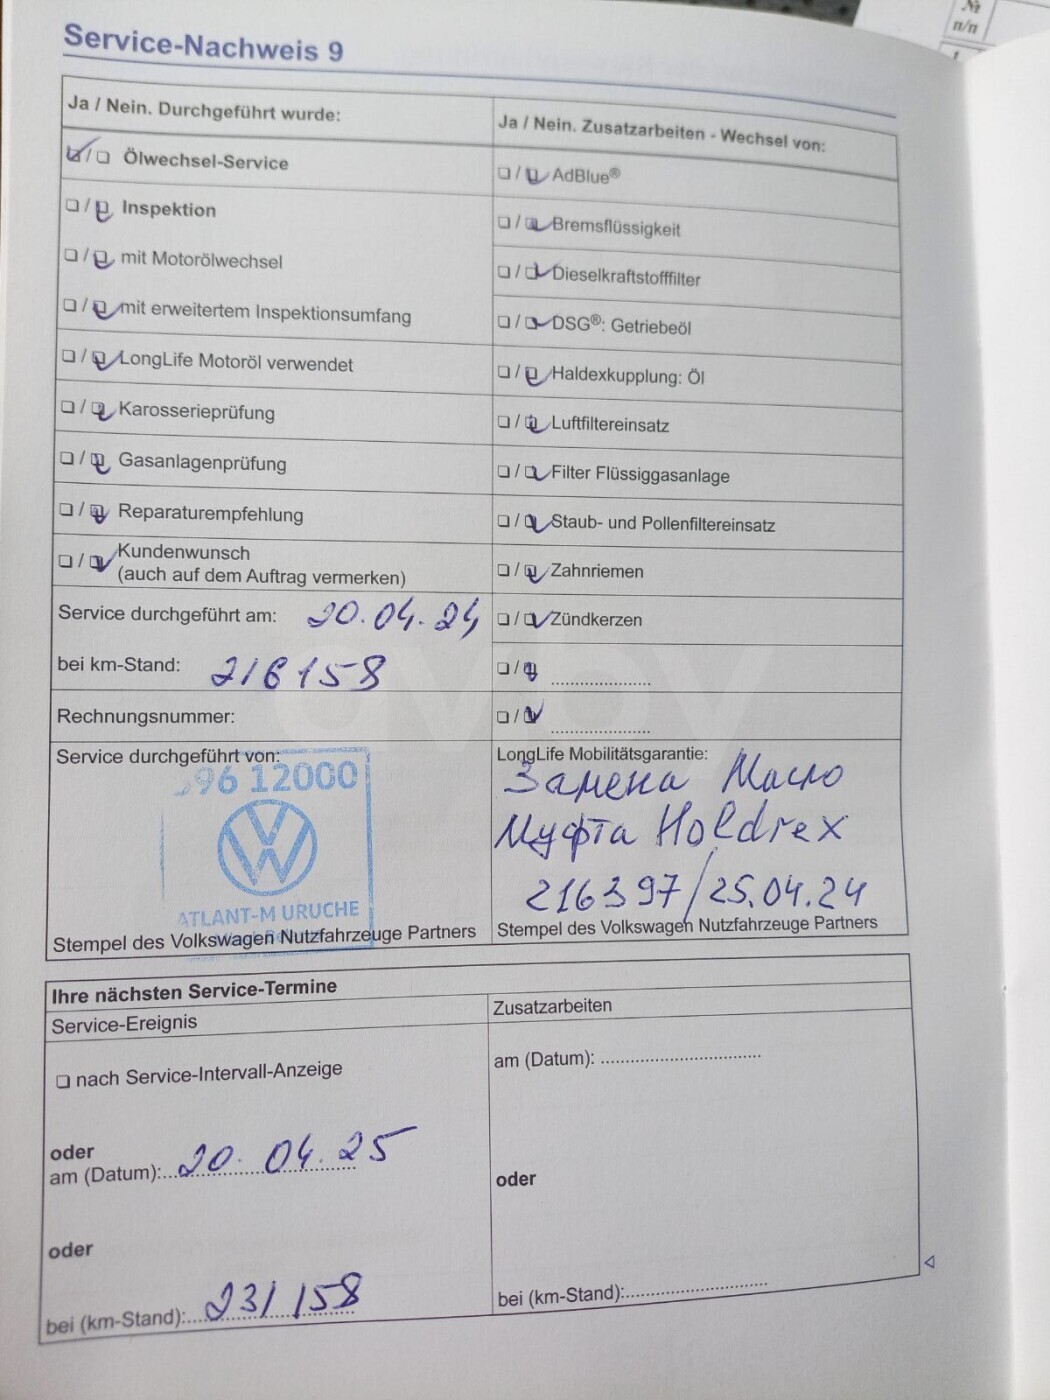 №
п/п
1
Service-Nachweis 9
Ja / Nein. Durchgeführt wurde:
Ölwechsel-Service
Inspektion
mit Motorölwechsel
mit erweitertem Inspektionsumfang
LongLife Motoröl verwendet
Karosserieprüfung
Gasanlagenprüfung
Reparaturempfehlung
Kundenwunsch
(auch auf dem Auftrag vermerken)
Service durchgeführt am: 20.04.24
bei km-Stand: 216158
Rechnungsnummer:
Service durchgeführt von:
96 12000
ATLANT-M URUCHE
Stempel des Volkswagen Nutzfahrzeuge Partners
Ja / Nein. Zusatzarbeiten - Wechsel von:
AdBlue®
Bremsflüssigkeit
Dieselkraftstofffilter
DSG®: Getriebeöl
Haldexkupplung: Öl
Luftfiltereinsatz
Filter Flüssiggasanlage
Staub- und Pollenfiltereinsatz
Zahnriemen
Zündkerzen
LongLife Mobilitätsgarantie:
Замена Масло
Муфта Holdrex
216397/25.04.24
Stempel des Volkswagen Nutzfahrzeuge Partners
Ihre nächsten Service-Termine
Service-Ereignis
nach Service-Intervall-Anzeige
oder
am (Datum): 20.04.25
oder
bei (km-Stand): 231158
Zusatzarbeiten
am (Datum):
oder
bei (km-Stand):
av.by